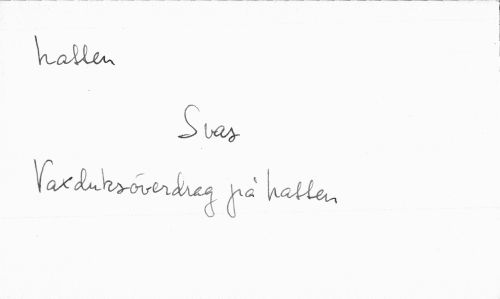 hatten
Svar
Vaxduksöverdrag på hatten